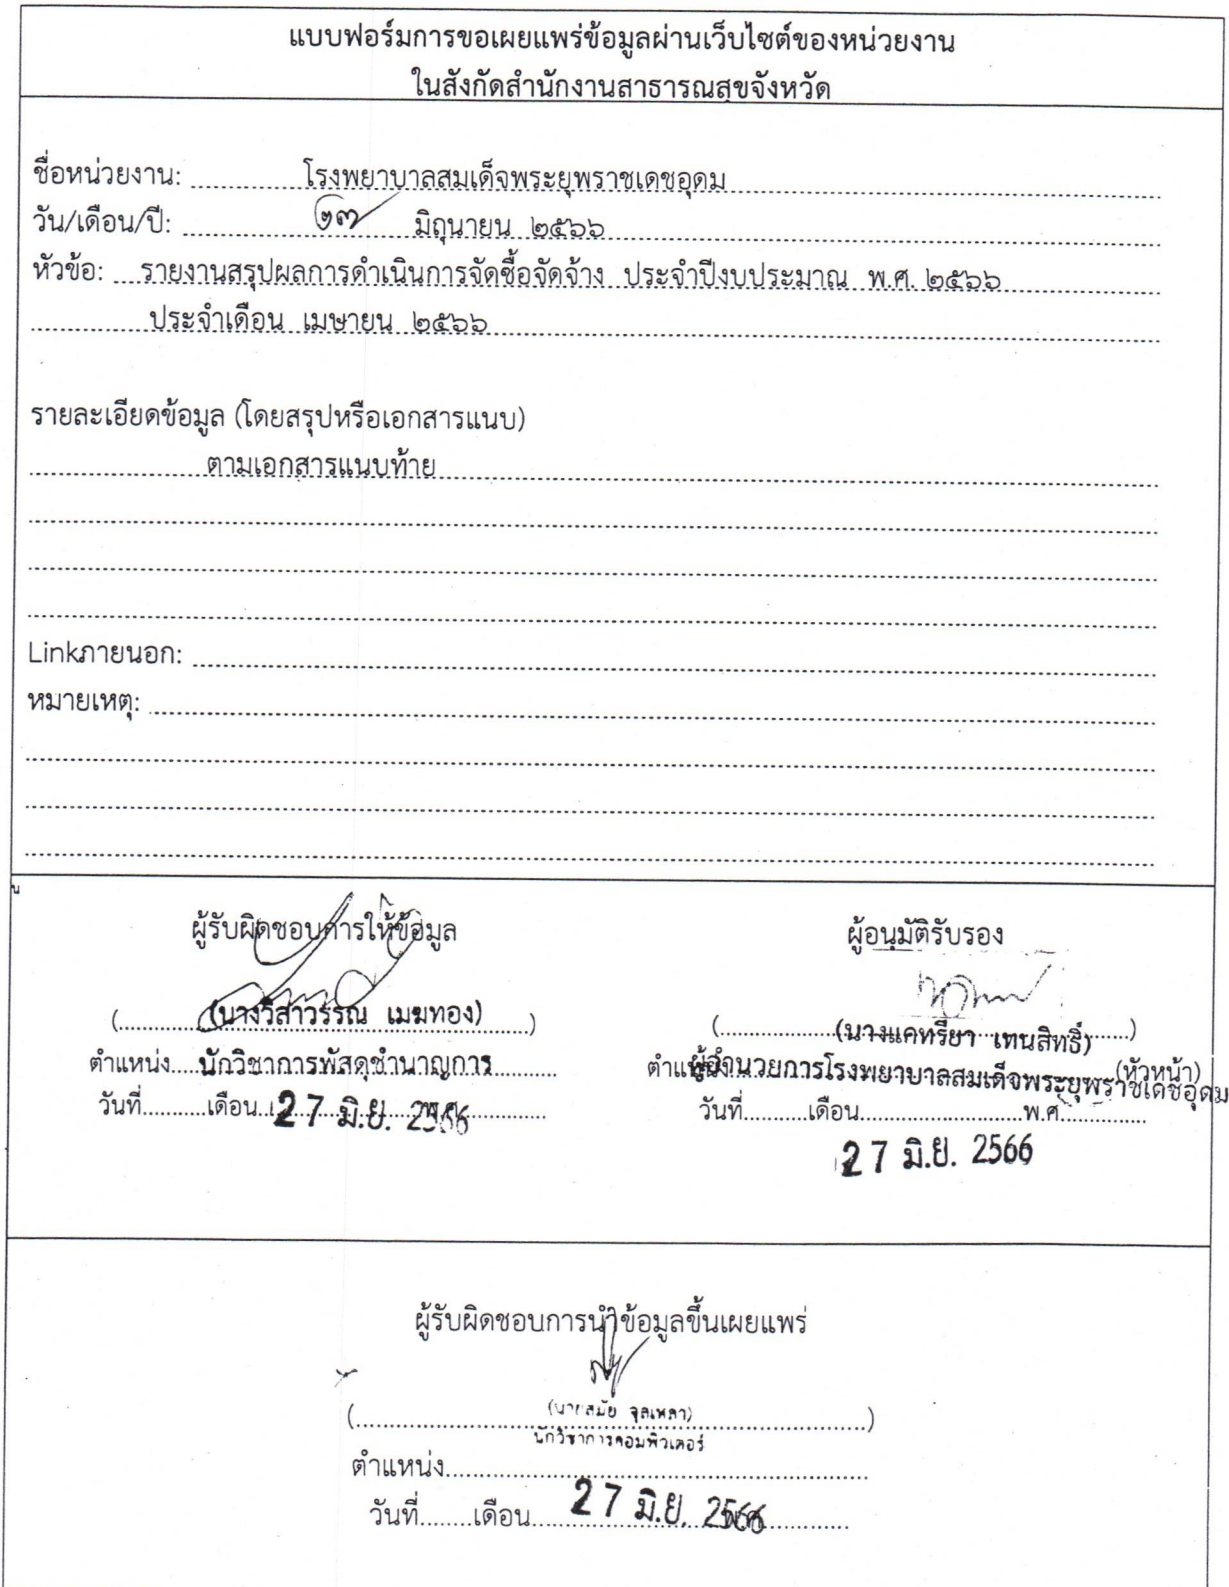 แบบฟอร์มการขอเผยแพร่ข้อมูลผ่านเว็บไซต์ของหน่วยงาน
ในสังกัดสำนักงานสาธารณสุขจังหวัด
ชื่อหน่วยงาน: โรงพยาบาลสมเด็จพระยุพราชเดชอุดม
วัน/เดือน/ปี: ๒๗ มิถุนายน ๒๕๖๖
หัวข้อ: รายงานสรุปผลการดำเนินการจัดซื้อจัดจ้าง ประจำปีงบประมาณ พ.ศ. ๒๕๖๖
ประจำเดือน เมษายน ๒๕๖๖
รายละเอียดข้อมูล (โดยสรุปหรือเอกสารแนบ)
ตามเอกสารแนบท้าย
Linkภายนอก:
หมายเหตุ:
ผู้รับผิดชอบการให้ข้อมูล
(นางวิสาวรรณ เมฆทอง)
ตำแหน่ง นักวิชาการพัสดุชำนาญการ
วันที่ เดือน 27 มิ.ย. 2566
ผู้อนุมัติรับรอง
(นางแคทรียา เทนสิทธิ์)
ตำแหน่ง ผู้อำนวยการโรงพยาบาลสมเด็จพระยุพราชเดชอุดม (หัวหน้า)
วันที่ เดือน พ.ศ
27 มิ.ย. 2566
ผู้รับผิดชอบการนำข้อมูลขึ้นเผยแพร่
(นายสมัย จุลเหลา)
นักวิชาการคอมพิวเตอร์
ตำแหน่ง
วันที่ เดือน 27 มิ.ย. 2566